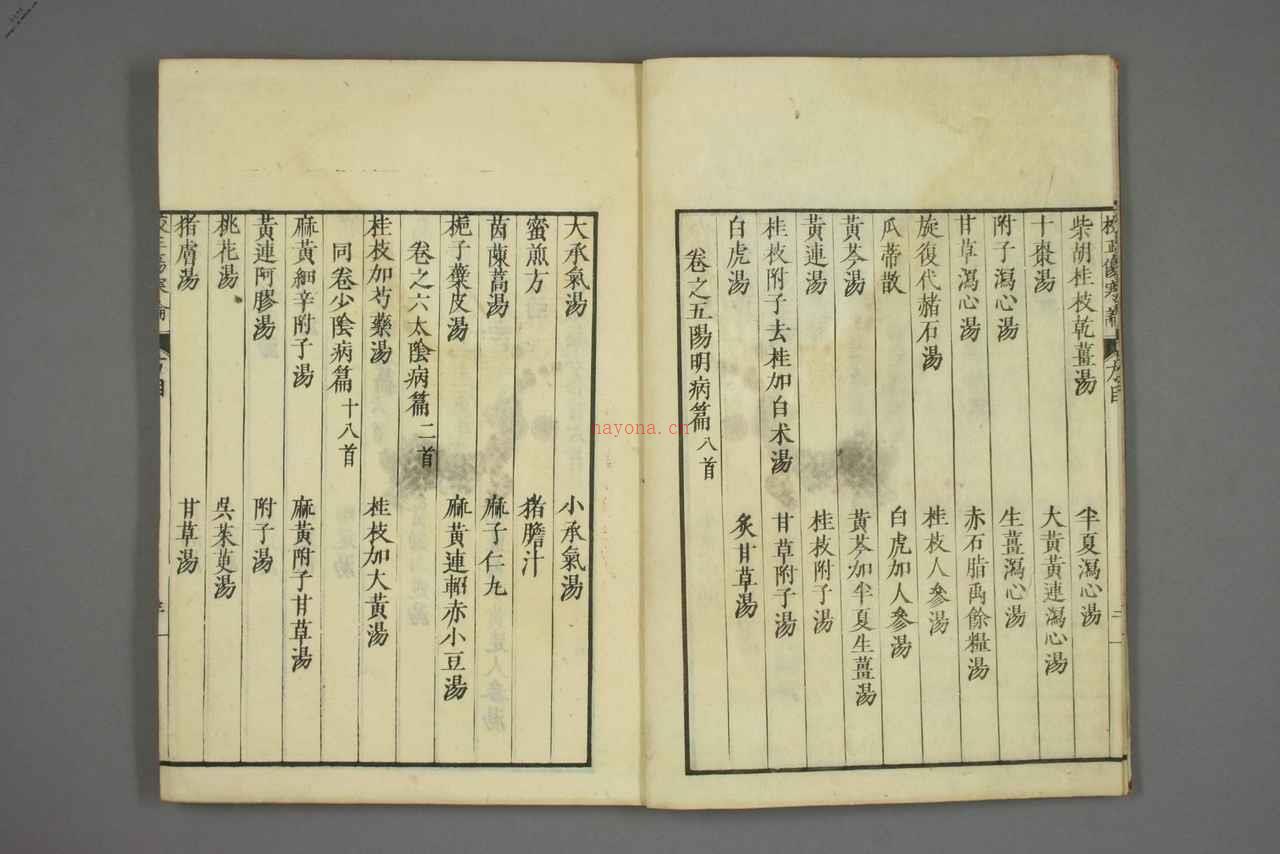 柴胡桂枝乾薑湯 半夏瀉心湯
十棗湯 大黃黃連瀉心湯
附子瀉心湯 生薑瀉心湯
甘草瀉心湯 赤石脂禹餘糧湯
旋復代赭石湯 桂枝人參湯
瓜蒂散 白虎加人參湯
黃芩湯 黃芩加半夏生薑湯
黃連湯 桂枝附子湯
桂枝附子去桂加白术湯 甘草附子湯
白虎湯 炙甘草湯
卷之五陽明病篇 八首
大承氣湯 小承氣湯
蜜煎方 猪膽汁
茵蔯蒿湯 麻子仁丸
梔子蘗皮湯 麻黃連軺赤小豆湯
卷之六太陰病篇 二首
桂枝加芍藥湯 桂枝加大黃湯
同卷少陰病篇 十八首
麻黃細辛附子湯 麻黃附子甘草湯
黃連阿膠湯 附子湯
桃花湯 吳茱萸湯
猪膚湯 甘草湯
nayona.cn